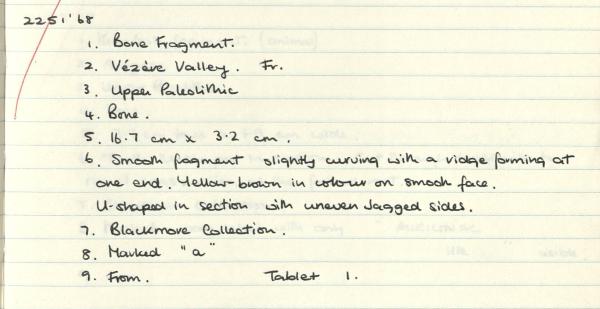 2251'68
1. Bone Fragment.
2. Vézère Valley. Fr.
3. Upper Paleolithic
4. Bone.
5. 16.7 cm x 3.2 cm.
6. Smooth fragment slightly curving with a ridge forming at
one end. Yellow-brown in colour on smooth face.
U-shaped in section with uneven jagged sides.
7. Blackmore Collection.
8. Marked "a"
9. From. Tablet 1.